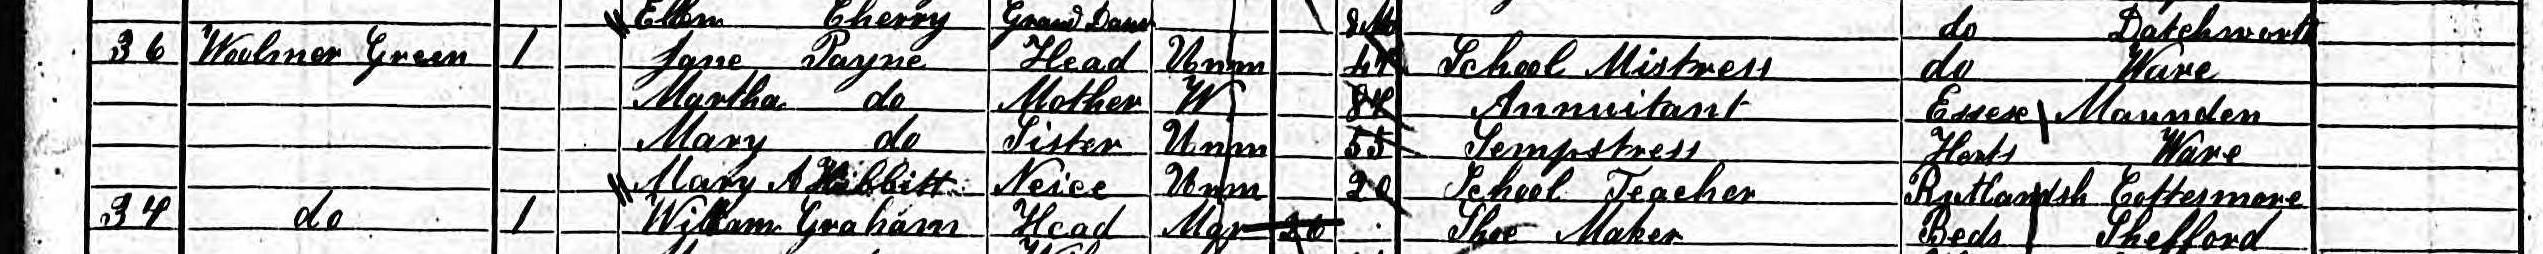 Ellen Cherry Grand Daur 8 Mo do Datchworth
36 Woolmer Green 1 Jane Payne Head Unm School Mistress do Ware
Martha do Mother W 84 Annuitant Essex Maunden
Mary do Sister Unm 55 Sempstress Herts Ware
Mary A Hibbitt Neice Unm 20 School Teacher Rutlandsh Cottesmore
34 do 1 William Graham Head Mar 26 Shoe Maker Beds Shefford